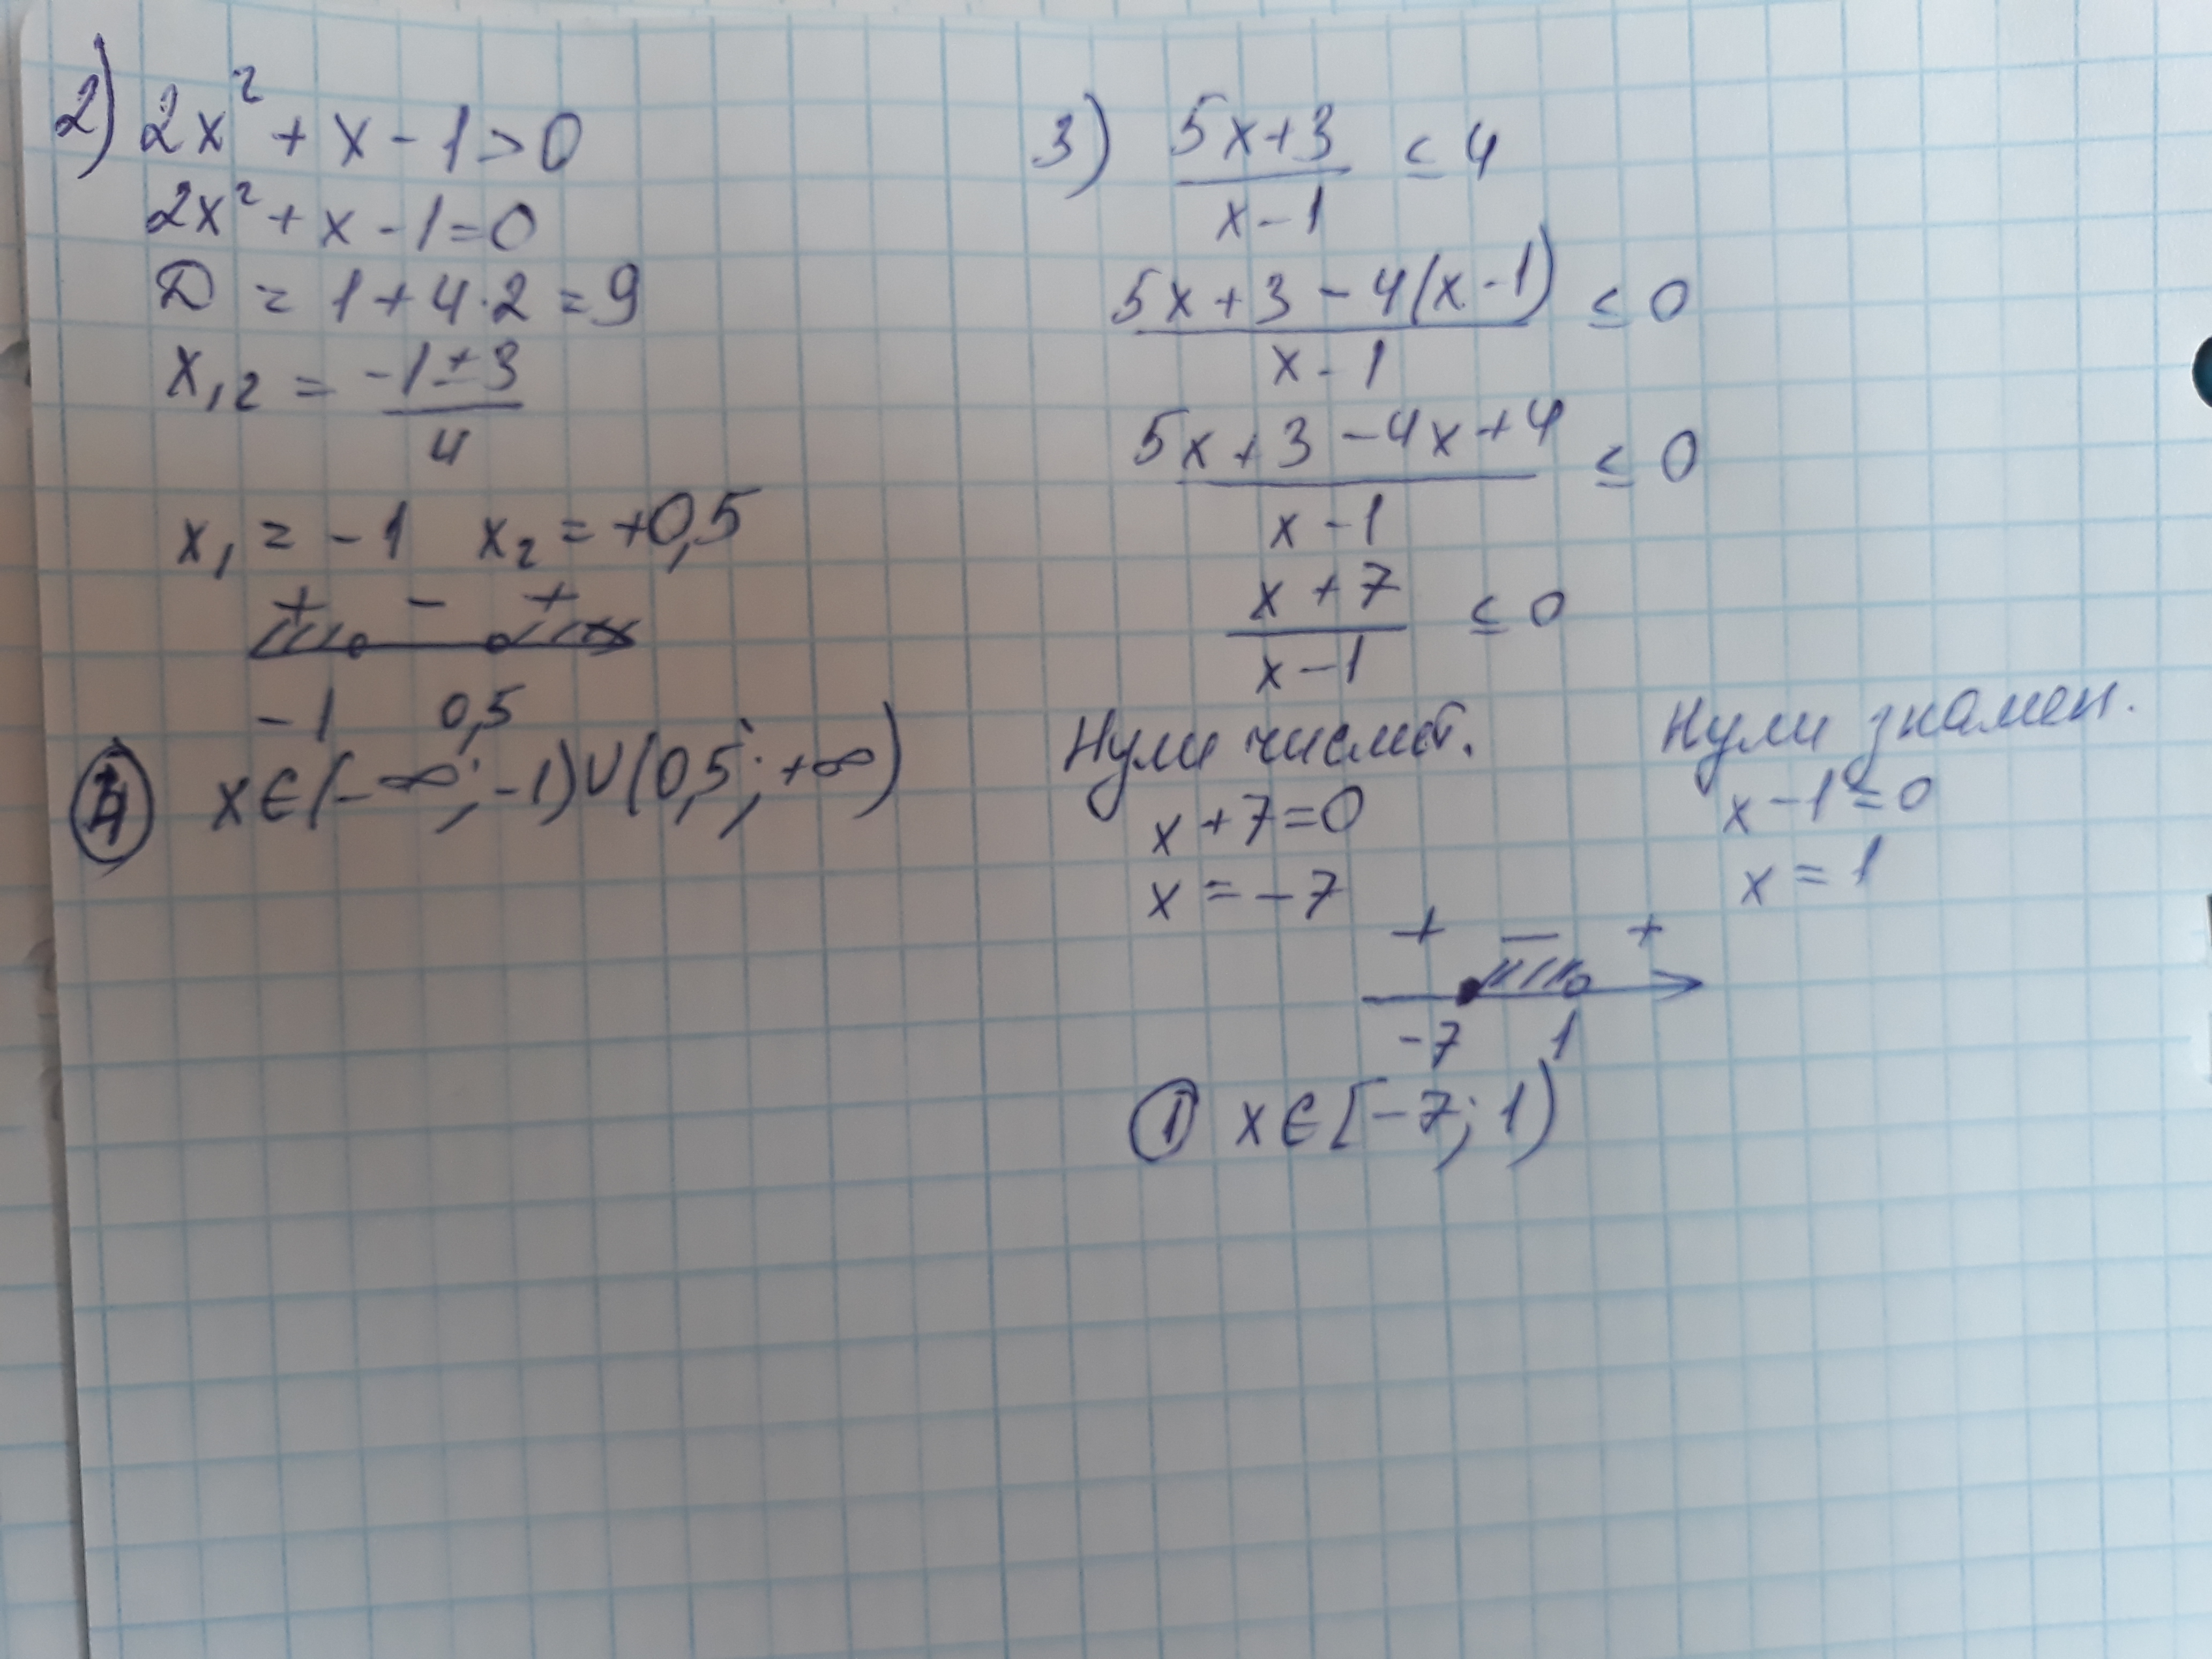 2) 2x² + x - 1 > 0
2x² + x - 1 = 0
D = 1 + 4·2 = 9
x₁,₂ = -1 ± 3
4
x₁ = -1 x₂ = +0,5
+ - +
-1 0,5
x ∈ (-∞; -1) ∪ (0,5; +∞)
3) 5x+3 ≤ 4
x - 1
5x + 3 - 4(x - 1) ≤ 0
x - 1
5x + 3 - 4x + 4 ≤ 0
x - 1
x + 7 ≤ 0
x - 1
Нули числит. Нули знамен.
x + 7 = 0 x - 1 = 0
x = -7 x = 1
+ - +
-7 1
① x ∈ [-7; 1)